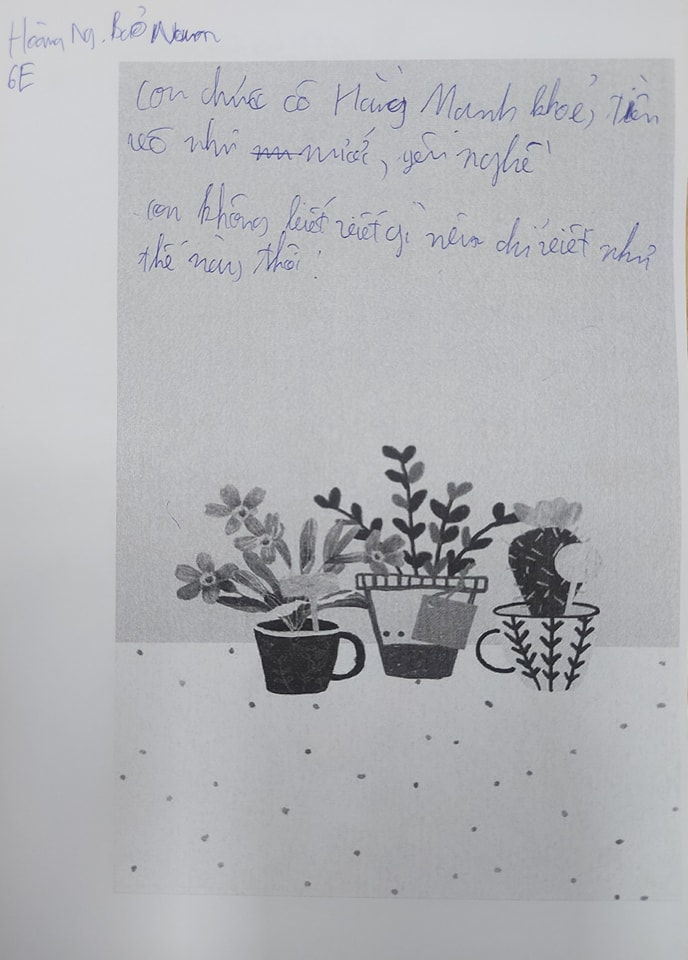 Hoàng Ng. Bảo
6E
Con chúc cô Hằng Mạnh khoẻ, tiền
vô như nước, yêu nghề
con không biết viết gì nên chỉ viết như
thế này thôi!